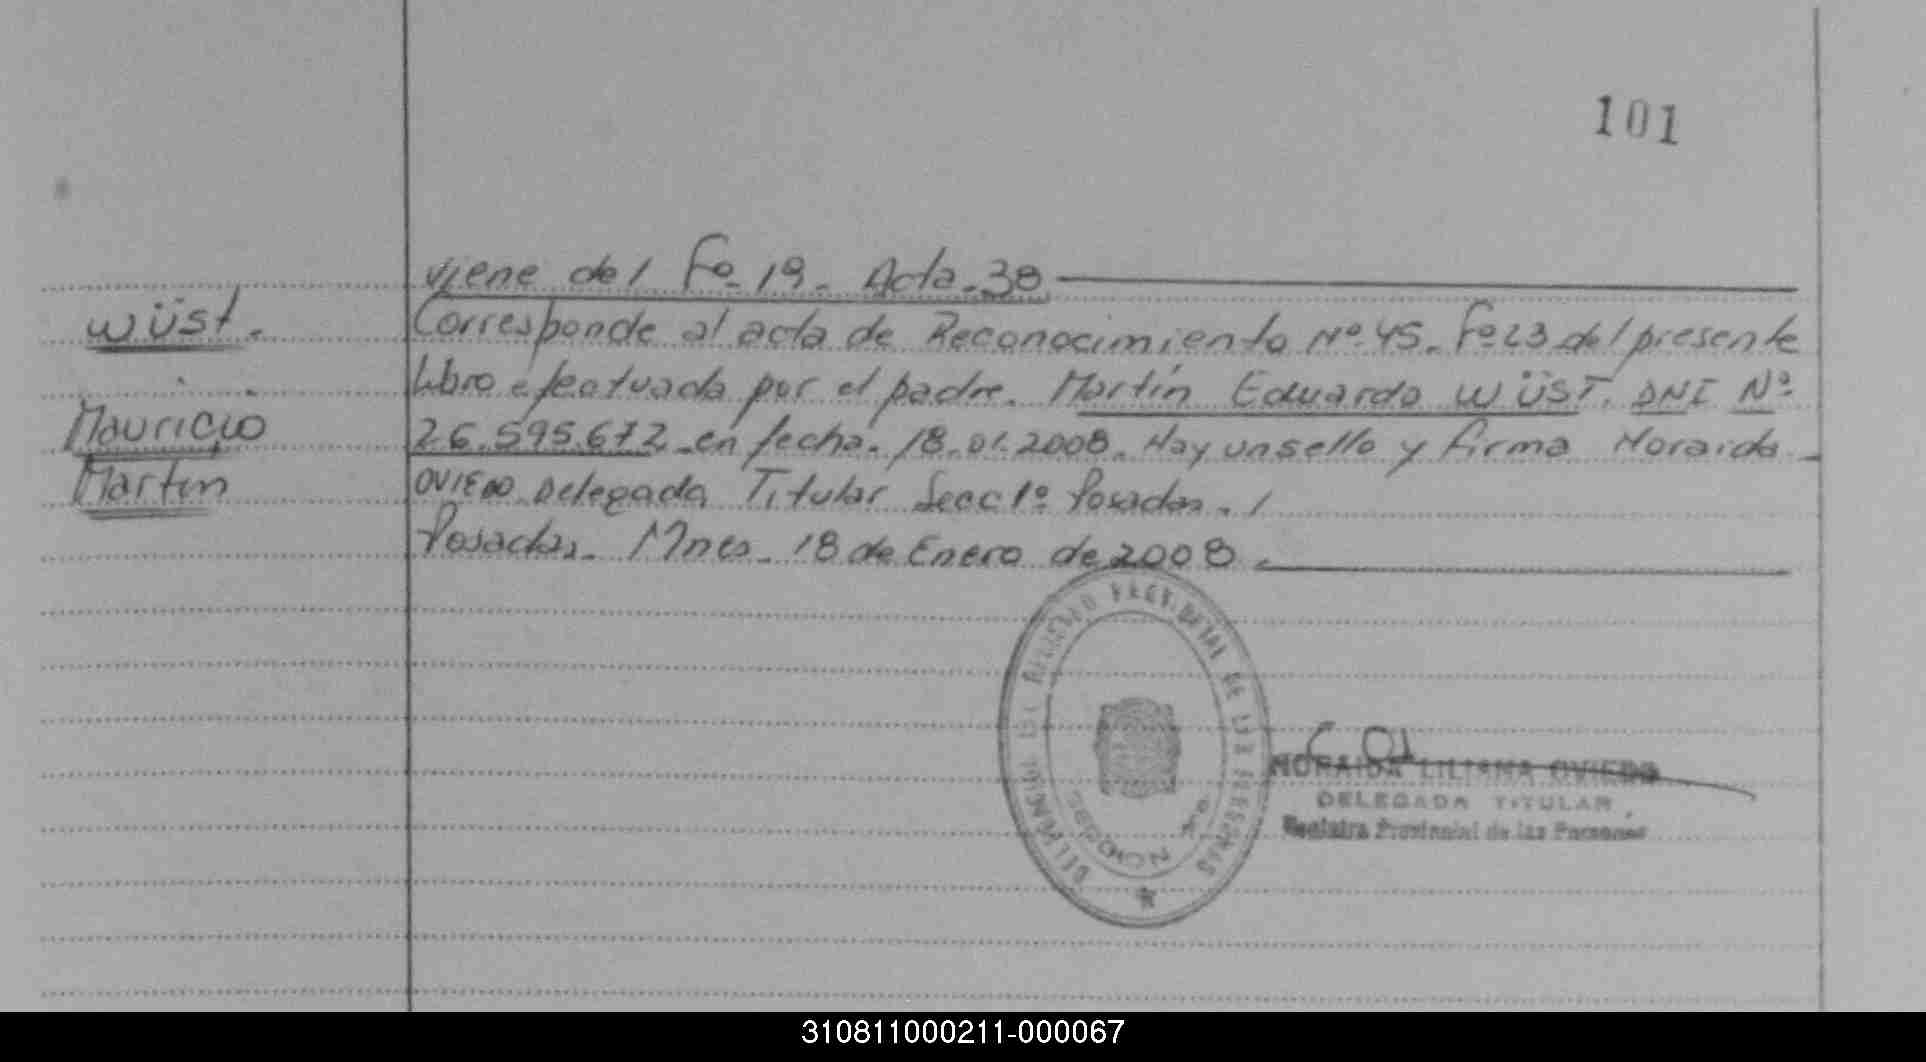 101
viene del Fº 19. Acta. 38
WÜST.
Corresponde al acta de Reconocimiento Nº 45. Fº 23 del presente
libro efectuada por el padre. Martín Eduardo WÜST. DNI Nº
Mauricio
26.595.672 en fecha. 18.01.2008. Hay un sello y firma Noraida
Martin
OVIEDO Delegada Titular Secc 1º Posadas. /
Posadas. Mnes. 18 de Enero de 2008.
REGISTRO PROVINCIAL DE LAS PERSONAS
NORAIDA LILIANA OVIEDO
DELEGADA TITULAR
Registro Provincial de las Personas
310811000211-000067